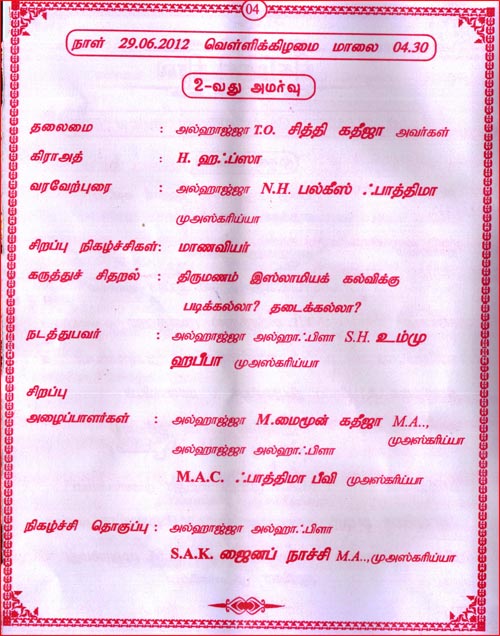 04
நாள் 29.06.2012 வெள்ளிக்கிழமை மாலை 04.30
2-வது அமர்வு
தலைமை : அல்ஹாஜ்ஜா T.O. சித்தி கதீஜா அவர்கள்
கிராஅத் : H. ஹஃப்ஸா
வரவேற்புரை : அல்ஹாஜ்ஜா N.H. பல்கீஸ் ஃபாத்திமா
முஅஸ்கரிய்யா
சிறப்பு நிகழ்ச்சிகள் : மாணவியர்
கருத்துச் சிதறல் : திருமணம் இஸ்லாமியக் கல்விக்கு
படிக்கல்லா? தடைக்கல்லா?
நடத்துபவர் : அல்ஹாஜ்ஜா அல்ஹாஃபிளா S.H. உம்மு
ஹபீபா முஅஸ்கரிய்யா
சிறப்பு
அழைப்பாளர்கள் : அல்ஹாஜ்ஜா M.மைமூன் கதீஜா M.A..,
முஅஸ்கரிய்யா
அல்ஹாஜ்ஜா அல்ஹாஃபிளா
M.A.C. ஃபாத்திமா பீவி முஅஸ்கரிய்யா
நிகழ்ச்சி தொகுப்பு : அல்ஹாஜ்ஜா அல்ஹாஃபிளா
S.A.K. ஜைனப் நாச்சி M.A..,முஅஸ்கரிய்யா